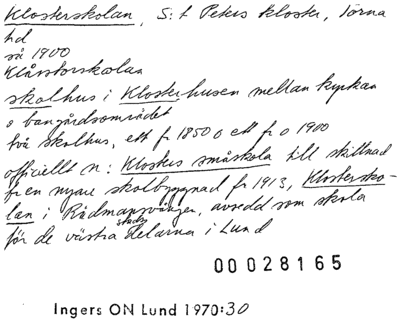 Klosterskolan, S:t Peters kloster, Torna
hd
så 1900
Klåsstorskolan
skolhus i Klosterhusen mellan kyrkan
o bangårdsområdet
två skolhus, ett fr 1850 o ett fr o 1900
officiellt n: Klosters småskola till skillnad
fr en nyare skolbyggnad fr 1913, Klostersko-
lan i Rådmansvången, avsedd som skola
för de västra stads delarna i Lund
00028165
Ingers ON Lund 1970:30